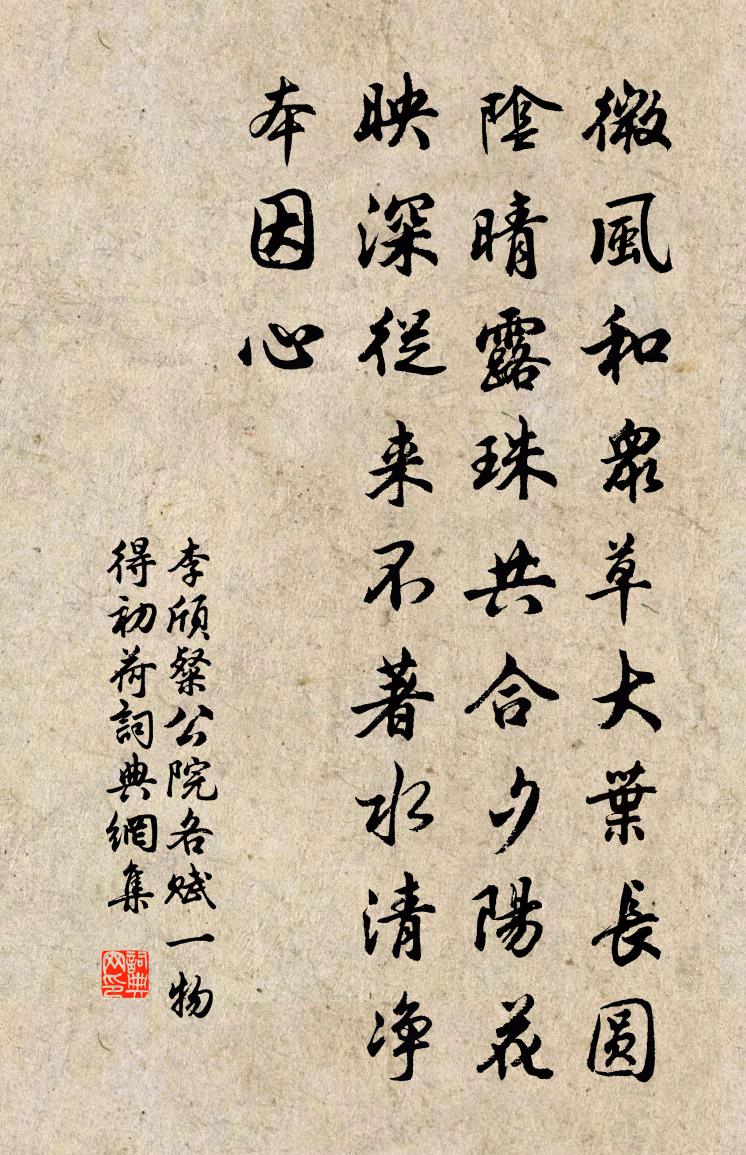 微風和眾草大葉長圓
陰晴露珠共合夕陽花
映深從来不著水清净
本因心
李頎粲公院各賦一物
得初荷詞典網集
詞典
网印